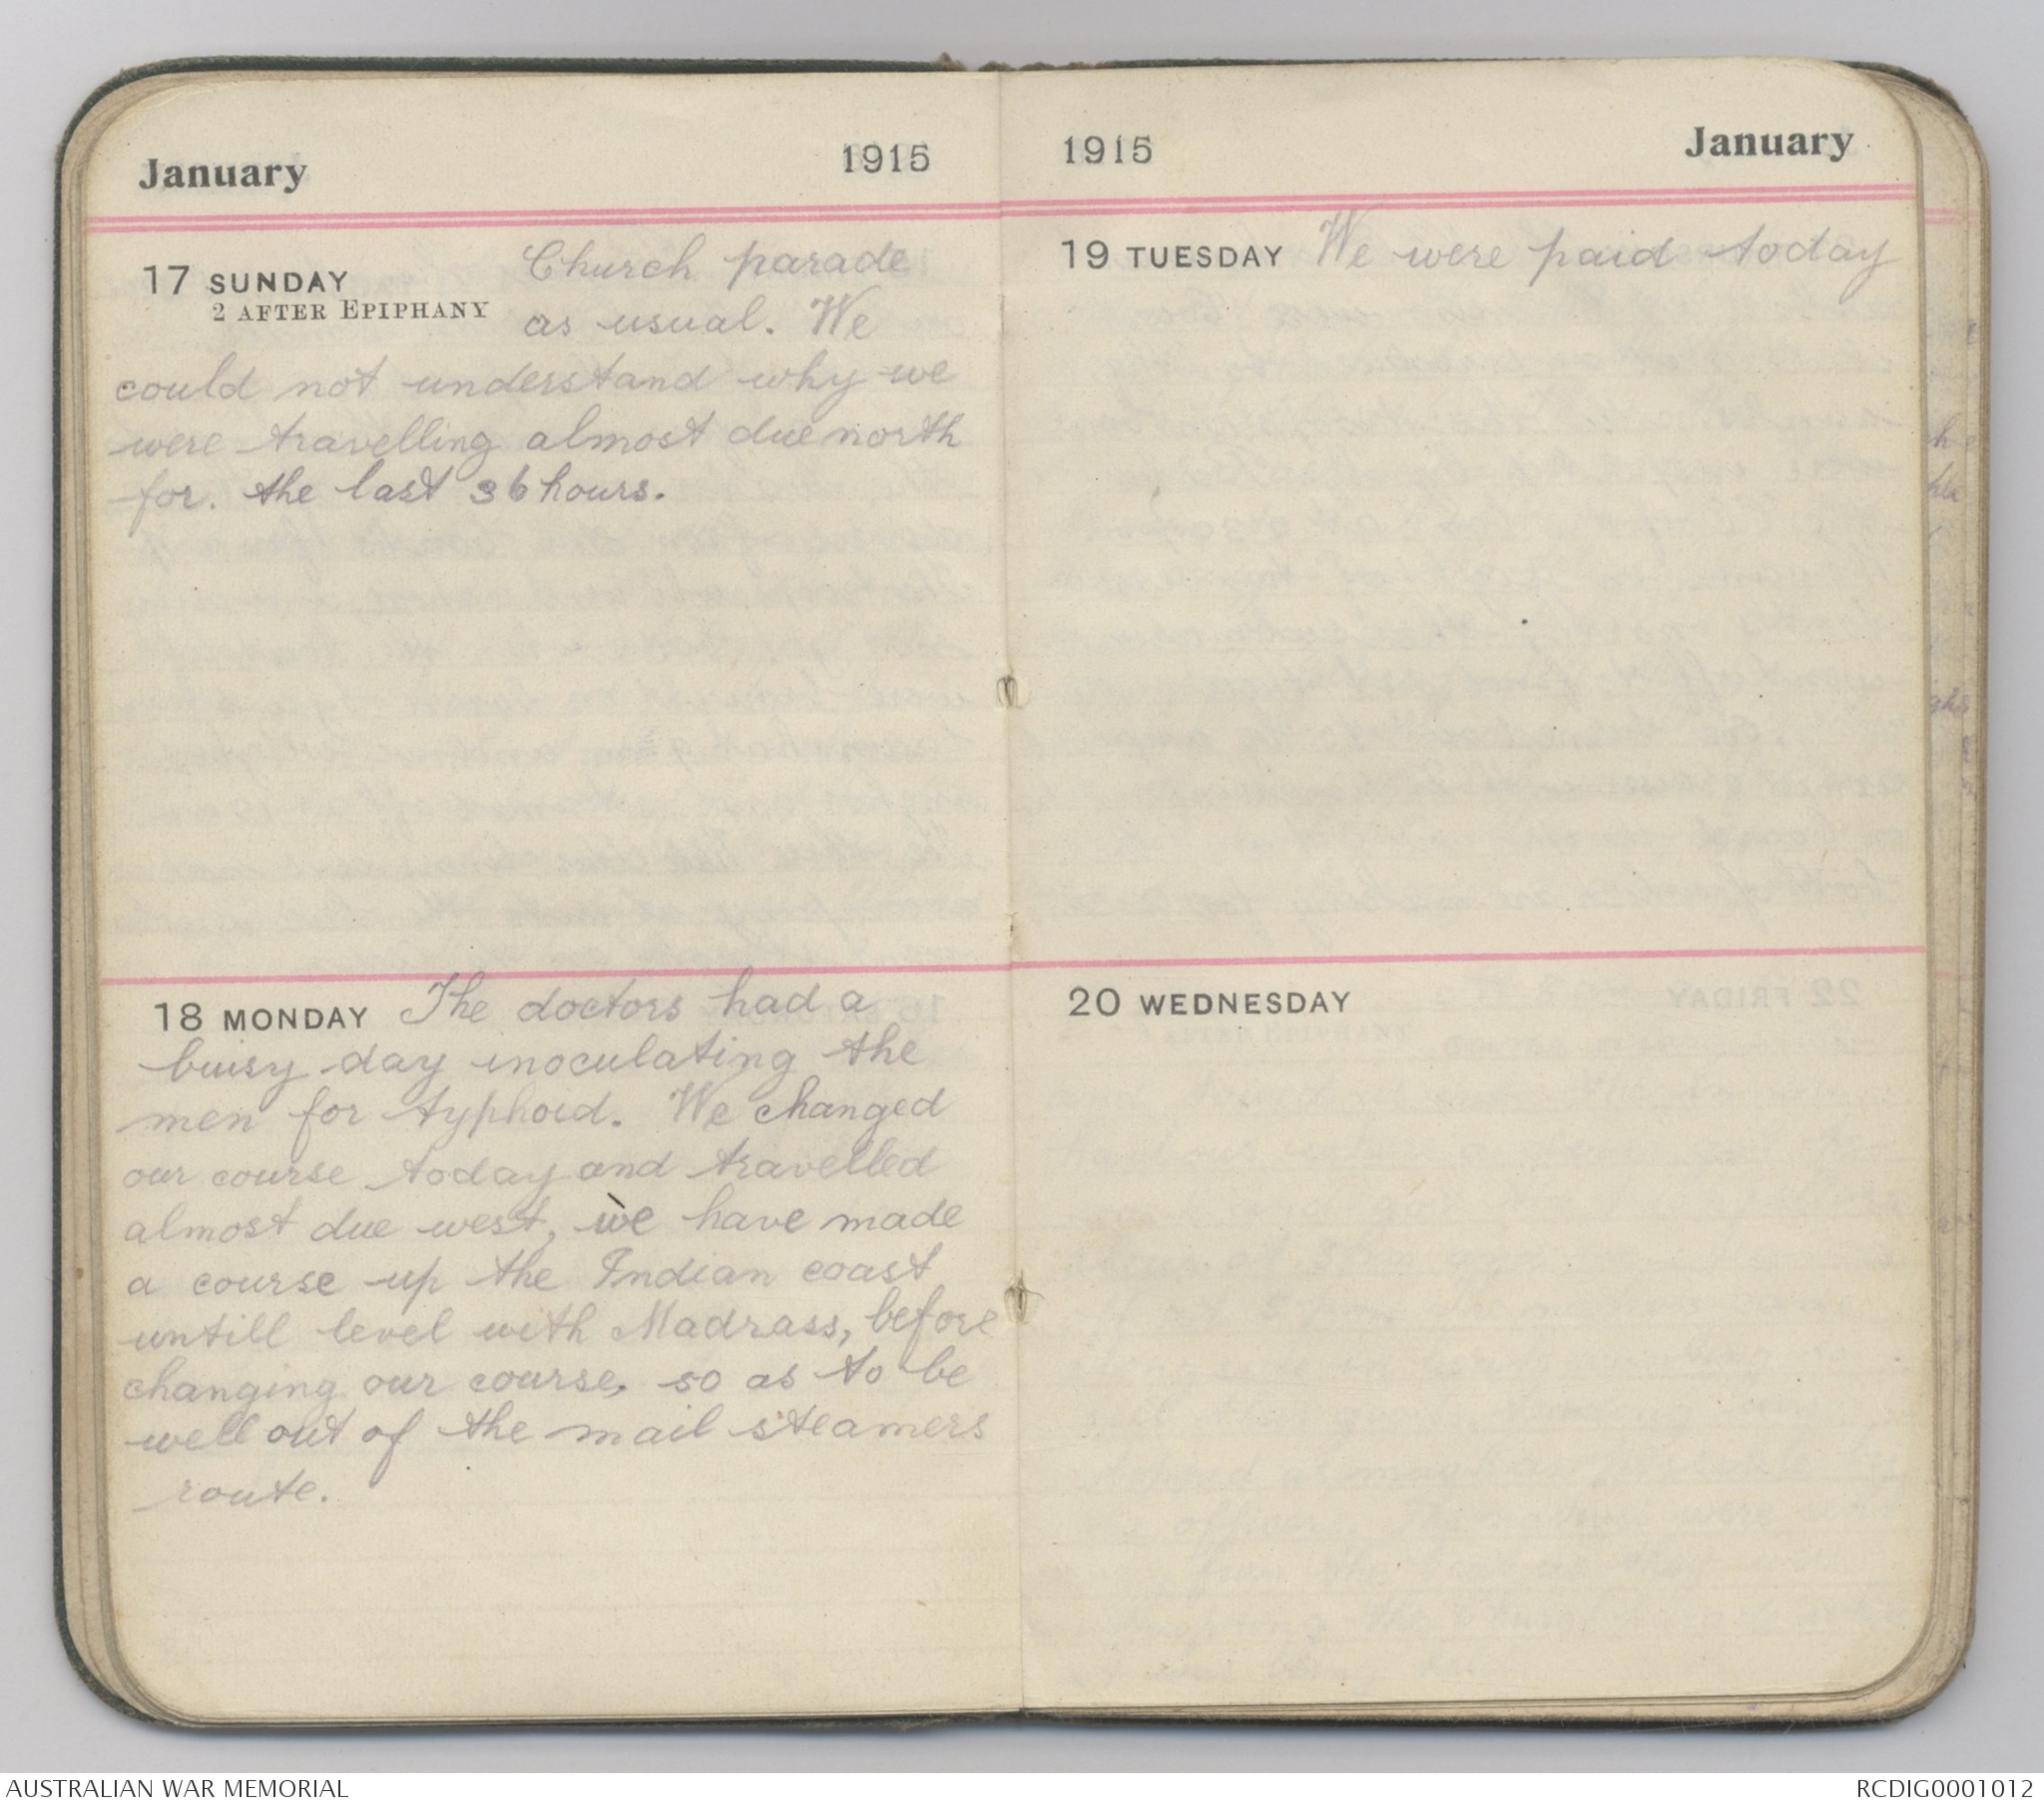 January 1915
17 SUNDAY
2 AFTER EPIPHANY
Church parade
as usual. We
could not understand why we
were travelling almost due north
for. the last 36 hours.
18 MONDAY The doctors had a
buisy day inoculating the
men for typhoid. We changed
our course today and travelled
almost due west, we have made
a course up the Indian coast
untill level with Madrass, before
changing our course, so as to be
well out of the mail steamers
route.
1915 January
19 TUESDAY We were paid today
20 WEDNESDAY
AUSTRALIAN WAR MEMORIAL
RCDIG0001012